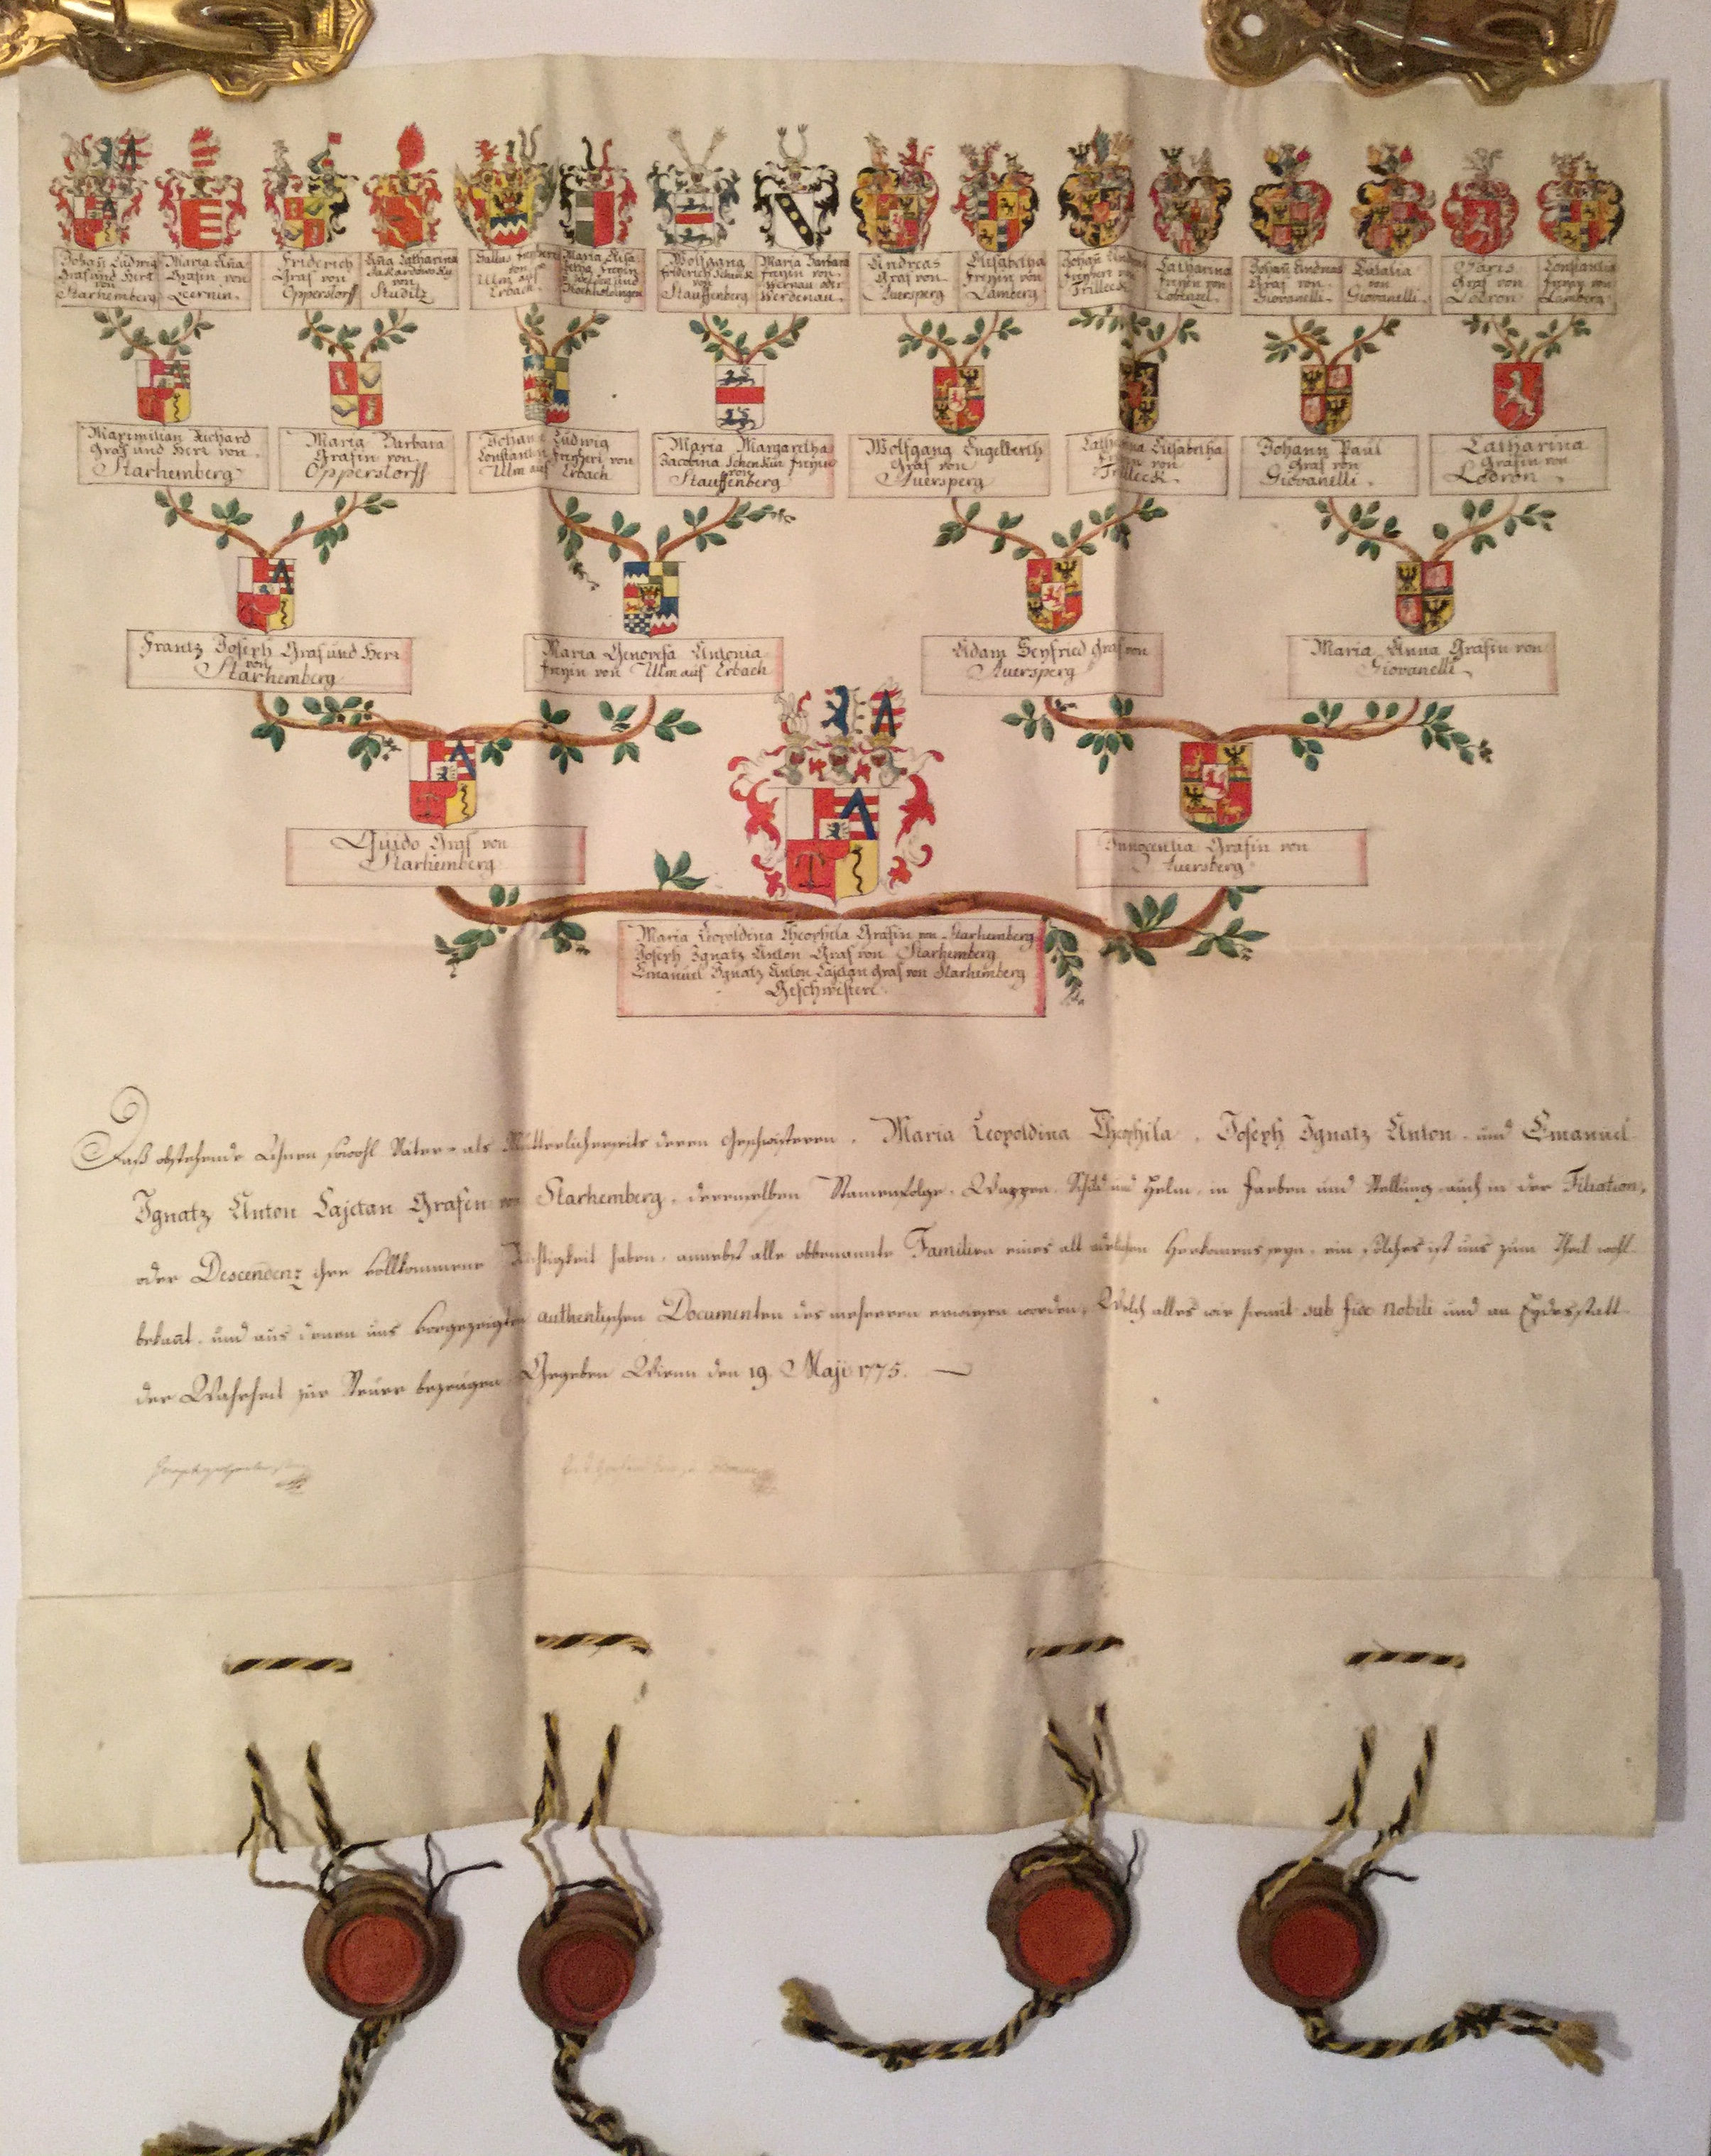 Johañ Ludwig
Graf und Herr
von
Starhemberg
Maria Aña
Gräfin von
Czernin.
Friderich
Graf von
Opperstorff
Aña Catharina
von
Studitz
Gallus Freyherr
von
Ulm auf
Erbach.
Maria Elisa
betha Freyin
Wolfgang
Friderich Schenk
von
Stauffenberg
Maria Barbara
Freyin von
Wernau oder
Werdenau.
Andreas
Graf von
Auersperg
Elisabetha
Freyin von
Lamberg
Johañ Andreas
Freyherr von
Trilleck
Catharina
Freyin von
Cobenzel.
Johañ Andreas
Graf von
Giovanelli.
von
Giovanelli.
Paris
Graf von
Lodron
Constantia
Freyin von
Lamberg.
Maximilian Richard
Graf und Herr von
Starhemberg
Maria Barbara
Gräfin von
Opperstorff
Johann Ludwig
Constantin Freyherr von
Ulm auf Erbach
Maria Margaretha
Jacobina Schenkin Freyin
von
Stauffenberg
Wolfgang Engelberth
Graf von
Auersperg
Catharina Elisabetha
Freyin von
Trilleck.
Johann Paul
Graf von
Giovanelli.
Catharina
Gräfin von
Lodron
Frantz Joseph Graf und Herr
von
Starhemberg
Maria Genovefa Antonia
Freyin von Ulm auf Erbach
Adam Seyfried Graf von
Auersperg
Maria Anna Gräfin von
Giovanelli
Guido Graf von
Starhemberg
Innocentia Gräfin von
Auersberg
Maria Leopoldina Theophila Gräfin von Starhemberg
Joseph Ignatz Anton Graf von Starhemberg
Emanuel Ignatz Anton Cajetan Graf von Starhemberg
Geschwistere.
Daß obstehende Ahnen sowohl Väter- als Mütterlicherseits deren Geschwisteren, Maria Leopoldina Theophila, Joseph Ignatz Anton, und Emanuel
Ignatz Anton Cajetan Grafen von Starhemberg, derenselben Stamenfolge, Wappen, Schild und Helm, in Farben und Stellung, auch in der Filiation,
oder Descendenz ihre vollkommene Richtigkeit haben, annebst alle obbenannte Familien eines alt adelichen Herkomens seyn, ein solches ist uns zum Theil wohl
bekañt, und aus denen uns vorgezeigten authentischen Documenten des mehreren erwiesen worden, Welch alles wir hiemit sub fide nobili und an Eydesstatt
der Wahrheit zur Steuer bezeugen. Gegeben Wienn den 19. Maji 1775.